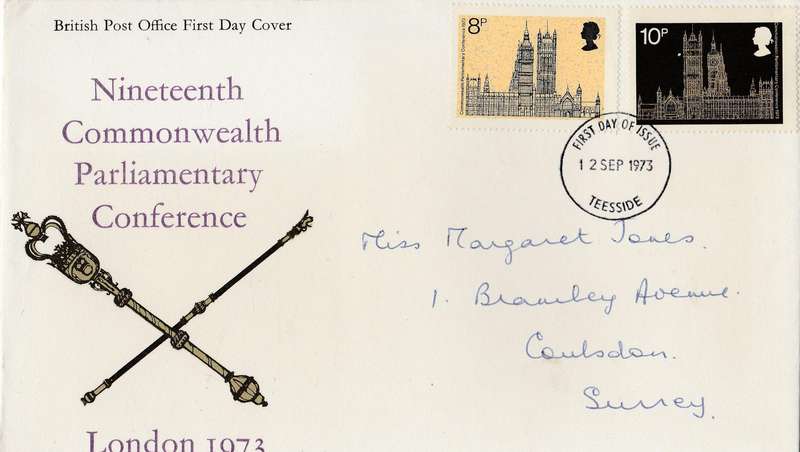 British Post Office First Day Cover
Nineteenth
Commonwealth
Parliamentary
Conference
London 1973
8P
10P
FIRST DAY OF ISSUE
12 SEP 1973
TEESSIDE
Miss Margaret Jones.
1. Bramley Avenue.
Coulsdon.
Surrey.